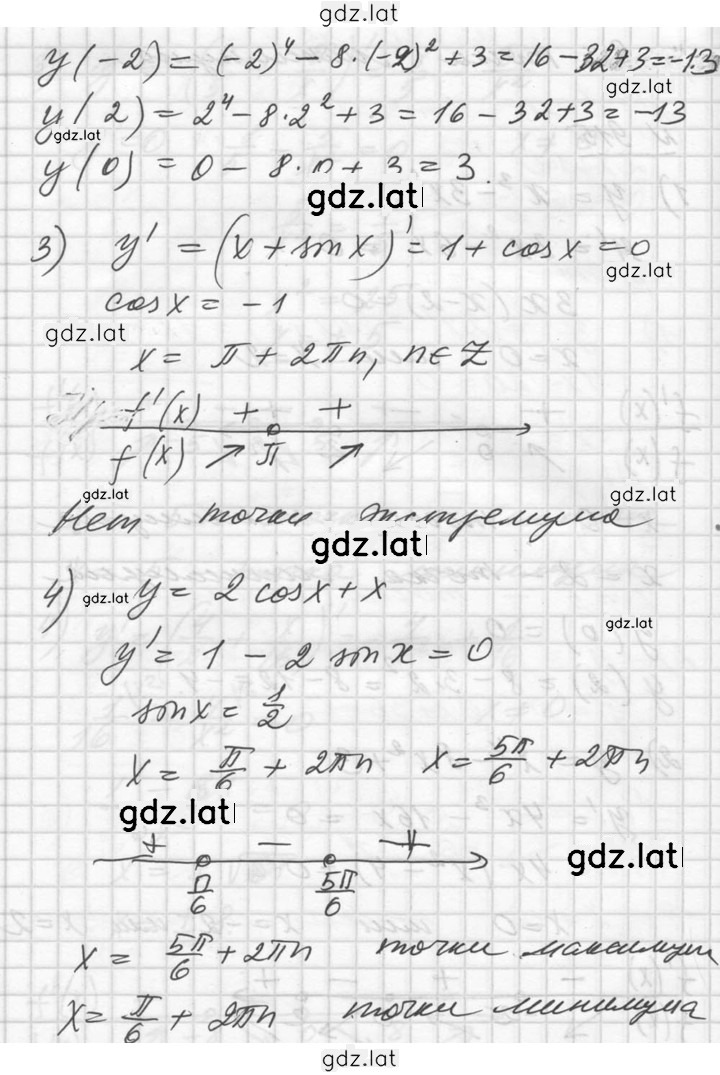 gdz.lat
y(-2) = (-2)⁴ - 8·(-2)² + 3 = 16 - 32 + 3 = -13
gdz.lat
y(2) = 2⁴ - 8·2² + 3 = 16 - 32 + 3 = -13
gdz.lat
y(0) = 0 - 8·0 + 3 = 3.
gdz.lat
3) y' = (x + sin x)' = 1 + cos x = 0
gdz.lat
cos x = -1
gdz.lat
x = π + 2πn, n∈Z
f'(x) + +
f(x) ↗ π ↗
gdz.lat gdz.lat
Нет точки экстремума
gdz.lat
4) gdz.lat y = 2 cos x + x
gdz.lat
y' = 1 - 2 sin x = 0
sin x = 1/2
x = π/6 + 2πn x = 5π/6 + 2πn
gdz.lat
+ - +
gdz.lat
π/6 5π/6
x = 5π/6 + 2πn точки максимум
x = π/6 + 2πn точки минимума
gdz.lat